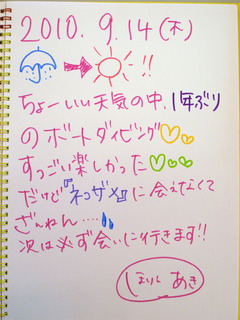 2010. 9.14(木)
!!
ちょーいい天気の中、1年ぶり
のボートダイビング♡♡
すっごい楽しかった♡♡♡
だけど『ネコザメ』に会えなくて
ざんねん....
次は必ず会いに行きます!!
あき